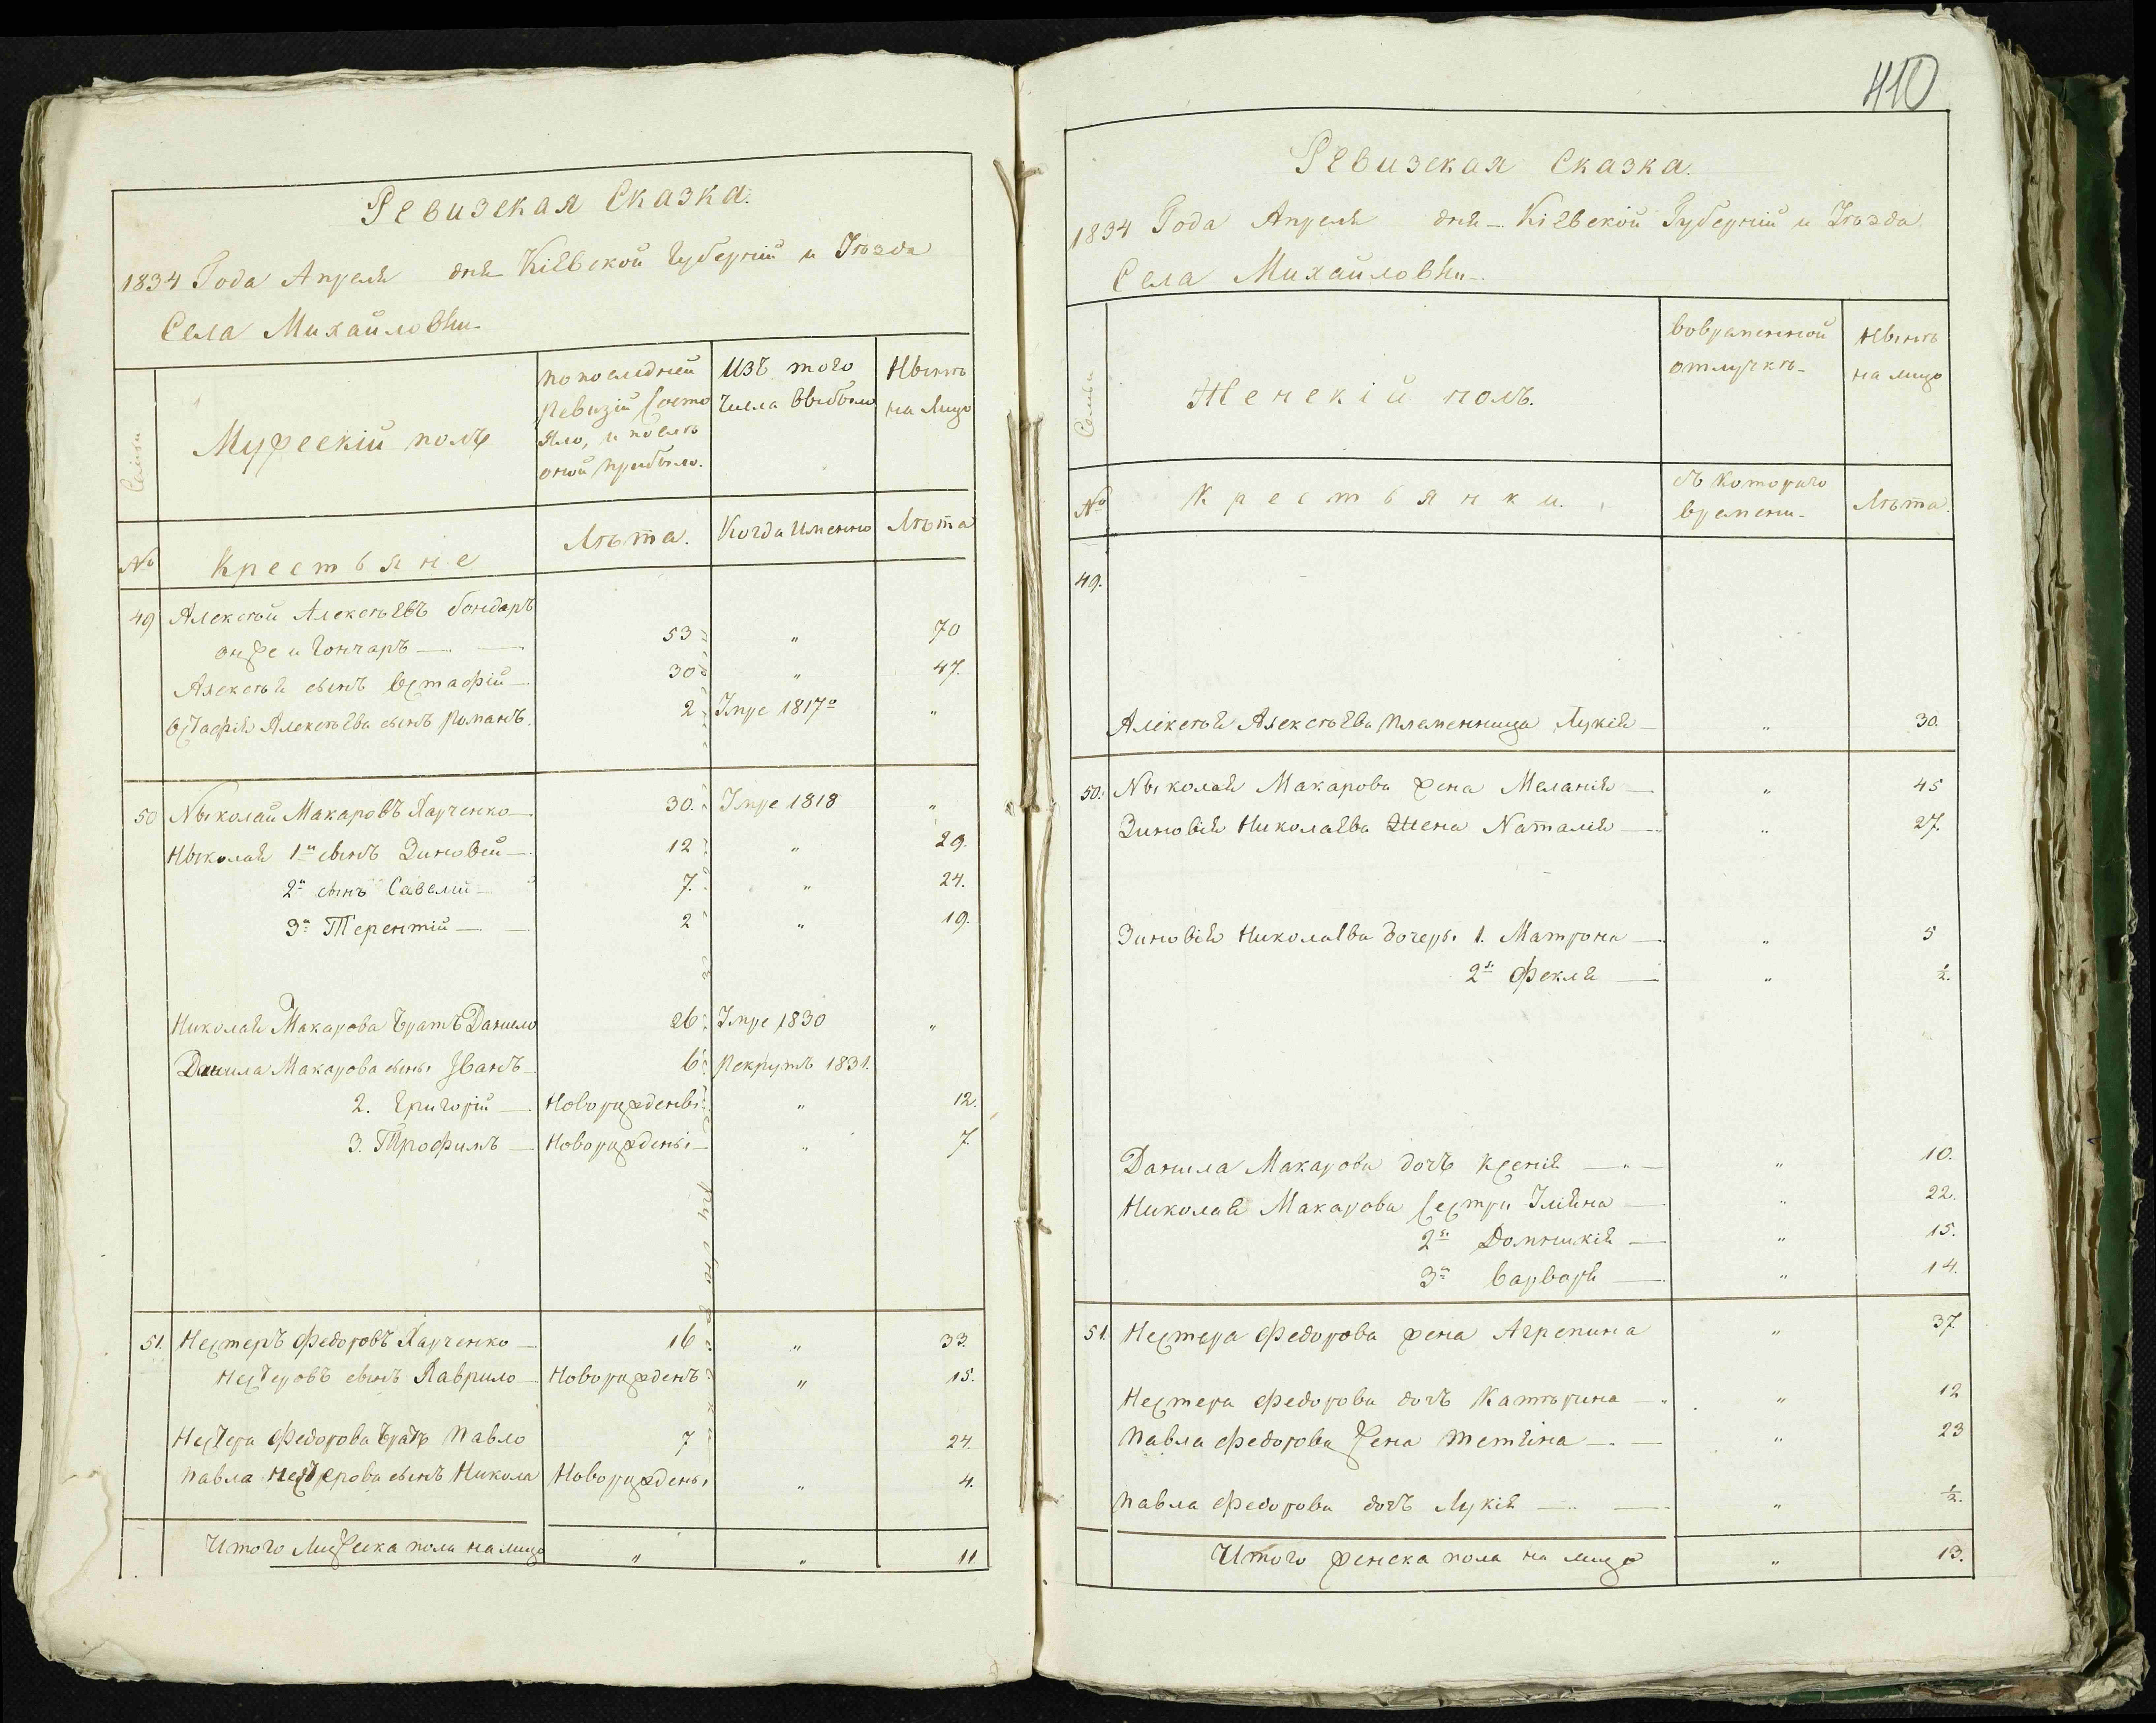 Ревизская Сказка.
1834 Года Апреля дня Кіевской Губерніи и Уѣзда
Села Михайловки
Семьи
Мужескій полъ
По последней
Ревизіи Состо
яло, и послѣ
оной прибыло.
Изъ того
числа выбыло
Нынѣ
на лицо
№
Крестьяне
Лѣта.
Когда Именно
Лѣта
49 Алексѣй Алексѣевъ бондарь
онже и Гончаръ — 53 " 70
Алексѣя сынъ Остафій — 30 " 47.
Остафія Алексѣева сынъ Романъ. 2 Умре 1817го "
50 Николай Макаровъ Харченко — 30. Умре 1818 "
Николая 1й сынъ Зиновей — 12 " 29.
2й сынъ Савелий — 7. " 24.
3й Терентій — 2 " 19.
Николая Макарова братъ Данило 26 Умре 1830 "
Данила Макарова сынъ Иванъ 6 Рекрутъ 1831. "
2. Григорій — Новорожденъ " 12.
3. Трофимъ — Новорожденъ — " 7.
51. Нестеръ Федоровъ Харченко — 16 " 33.
Нестеровъ сынъ Лаврило Новорожденъ " 15.
Нестера Федорова братъ Павло 7 " 24.
Павла Нестерова сынъ Никола Новорожденъ " 4.
Итого Мужеска пола налицо " " 11
410
Ревизская Сказка.
1834 Года Апреля дня — Кіевской Губерніи и Уѣзда
Села Михайловки —
Семьи
Женскій полъ.
Вовременной
отлучкѣ —
Нынѣ
на лицо
№
Крестьянки.
съ Котораго
времени —
Лѣта.
49.
Алексѣя Алексѣева племенница Лукія — " 30.
50. Николая Макарова жена Меланія — " 45
Зиновія Николаева Жена Наталія — " 27.
Зиновія Николаева дочеръ 1. Матрона — " 5
2я Фекла — " ½.
Данила Макарова дочъ Ксенія — " 10.
Николая Макарова Сестри Уляна — " 22.
2я Домникія — " 15.
3я Варвара — " 14.
51. Нестера Федорова жена Агрепина " 37
Нестера Федорова дочъ Катѣрина — " 12
Павла Федорова Жена Тетяна — " 23
Павла Федорова дочъ Лукія — " ½.
Итого женска пола на лицо " 13.